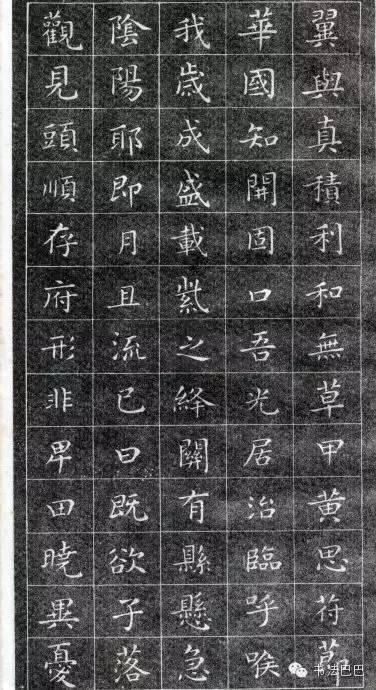 翼與真積利和無草甲黄思苻
華國知開固口吾光居治臨呼喉
我歲成盛載紫之絳關有縣懸急
陰陽耶即月且流已曰既欲子落
觀見頭順存府形非卑田曉憂
书法巴巴